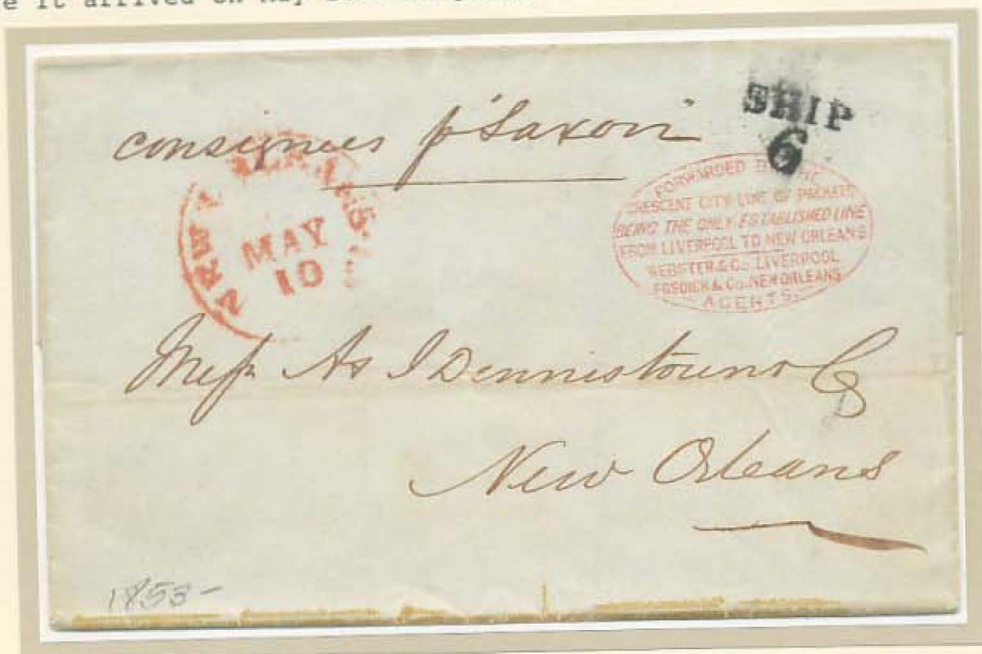 e it arrived on May
consignees p "Saxon"
SHIP
6
NEW
MAY
10
FORWARDED BY THE
CRESCENT CITY LINE OF PACKETS
BEING THE ONLY ESTABLISHED LINE
FROM LIVERPOOL TO NEW ORLEANS
WEBSTER & Co. LIVERPOOL
FOSDICK & Co. NEW ORLEANS
AGENTS.
Messrs As J Dennistoun & Co
New Orleans
1853-